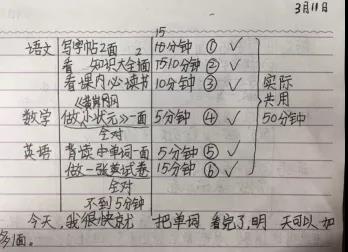 3月11日
15
语文 写字帖2面 15分钟 ① ✓
2
看 知识大全 面 10分钟 ② ✓
看课内必读书 10分钟 ③ ✓ 实际
共用
数学 做小状元一面 5分钟 ④ ✓ 50分钟
全对
英语 背读中单词一面 5分钟 ⑤ ✓
做一张英试卷 15分钟 ⑥ ✓
全对
不到5分钟
今天,我很快就 把单词 看完了,明 天可以 加
多1面。